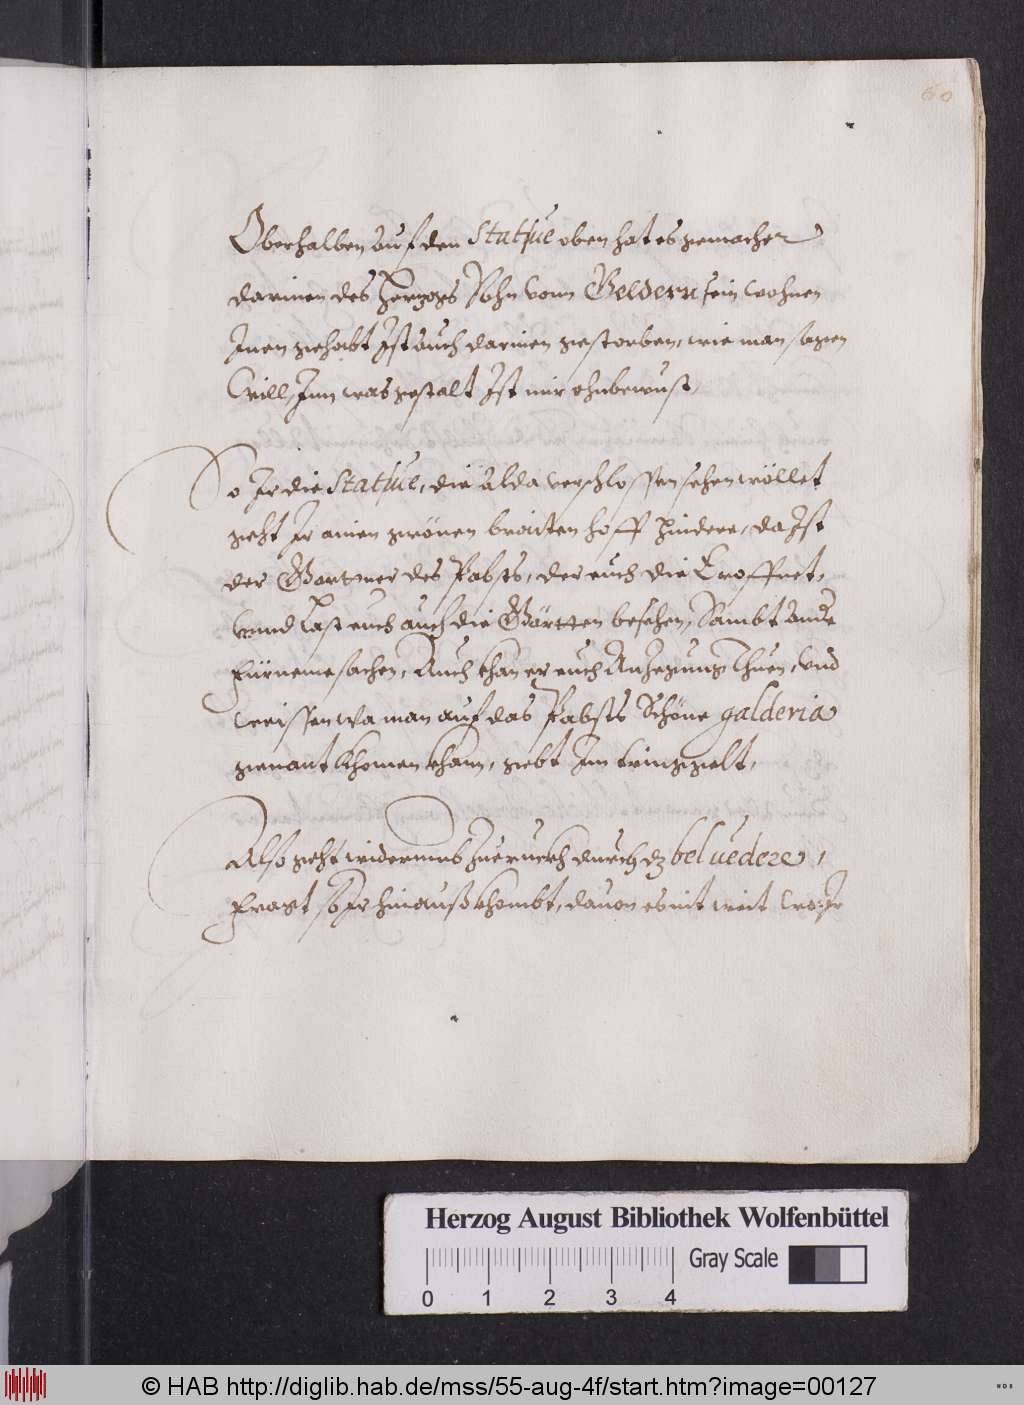 60
Oberhalben auf den Statüe oben hat es gemacher
darinen des Herzogs Sohn vonn Geldern sein wohnen
Inen gehabt Ist auch darinen gestorben, wie man sagen
will, Inn was gestalt Ist mir ohnbewust,
So Ir die Statüe, die alda verschlossen sehen wöllet
geht Ir ainen grönen braiten hoff hindere, da Ist
der Gartner des Pabsts, der euch die Eroffnet,
Vnnd last euch auch die Gärtten besehen, Sambt ande
fürneme sachen, Auch khan er euch Anzegung thuen, vnd
weissen wa man auf das Pabsts Schöne galderia
genant khomen khann, gebt Im tringgelt,
Also geht widerumb Zueruckh durch dz beluedere,
fragt so Ir hinauß khombt, dauon es nit weit wo Ir
Herzog August Bibliothek Wolfenbüttel
Gray Scale
0 1 2 3 4
© HAB http://diglib.hab.de/mss/55-aug-4f/start.htm?image=00127